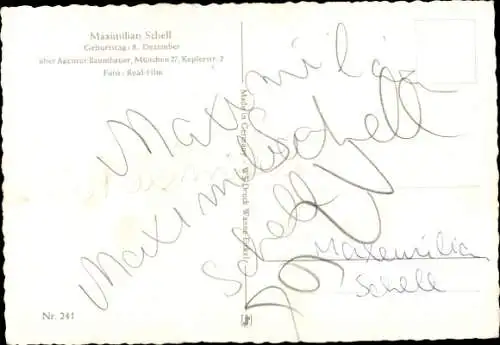 Maximilian Schell
Geburtstag: 8. Dezember
über Agentur Baumbauer, München 27, Keplerstr. 2
Foto: Real-Film
Maximilian
Schell
Maximilian
Schell
Made in Germany
Maxemilian
Schell
Nr. 241